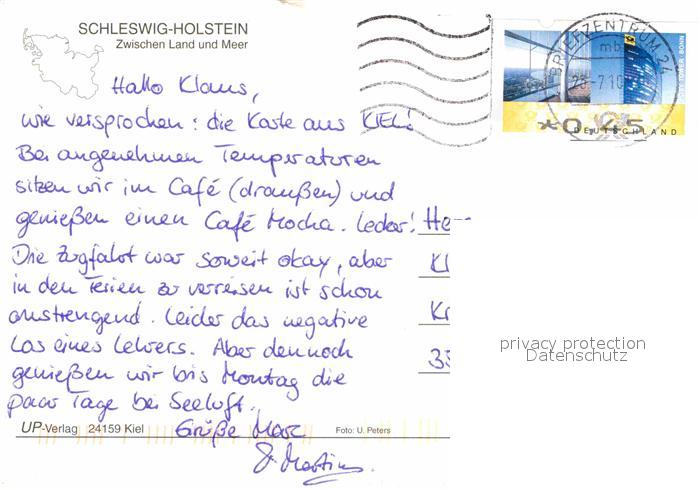 SCHLESWIG-HOLSTEIN
Zwischen Land und Meer
Hallo Klaus,
wie versprochen: die Karte aus KIEL!
Bei angenehmen Temperaturen
sitzen wir im Café (draußen) und
genießen einen Café Mocha. Lecker!
Die Zugfahrt war soweit okay, aber
in den Ferien zu verreisen ist schon
anstrengend. Leider das negative
Los eines Lehrers. Aber dennoch
genießen wir bis Montag die
paar Tage bei Seeluft.
Grüße Marc
& Martin
UP-Verlag 24159 Kiel
Foto: U. Peters
BRIEFZENTRUM 24
mb
DEUTSCHLAND
He
Kl
Kr
privacy protection
Datenschutz